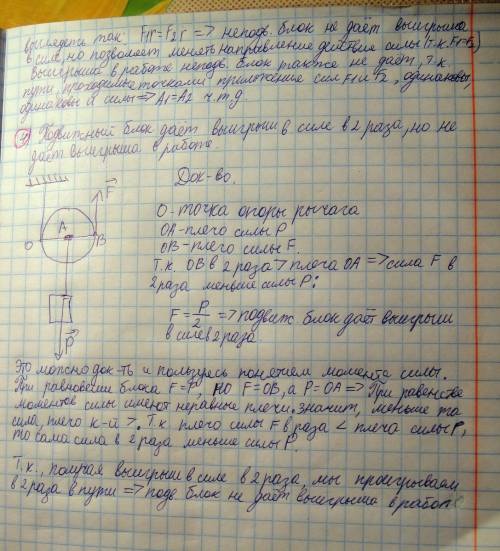 выглядеть так: F₁r=F₂r => неподв. блок не даёт выигрыша
в силе, но позволяет менять направление действия силы (т.к. F₁=F₂)
Выигрыша в работе неподв. блок также не даёт, т.к.
пути, проходимые точками приложения сил F₁ и F₂, одинаковы,
одинаковы и силы => A₁=A₂ ч.т.д.
Подвижный блок даёт выигрыш в силе в 2 раза, но не
даёт выигрыша в работе.
Док-во.
F
A
O
B
P
O-точка опоры рычага
OA-плечо силы P
OB-плечо силы F.
Т.к. OB в 2 раза > плеча OA => сила F в
2 раза меньше силы P:
F=P/2 => подвиж. блок даёт выигрыш
в силе в 2 раза
Это можно док-ть и пользуясь понятием момента силы.
При равновесии блока F=P, но F=OB, а P=OA => При равенстве
моментов силы имеют неравные плечи. значит, меньше та
сила, плечо к-й >. Т.к плечо силы F в раза < плеча силы P,
то сама сила в 2 раза меньше силы P.
Т.к., получая выигрыш в силе в 2 раза, мы проигрываем
в 2 раза в пути => подв блок не даёт выигрыша в работе